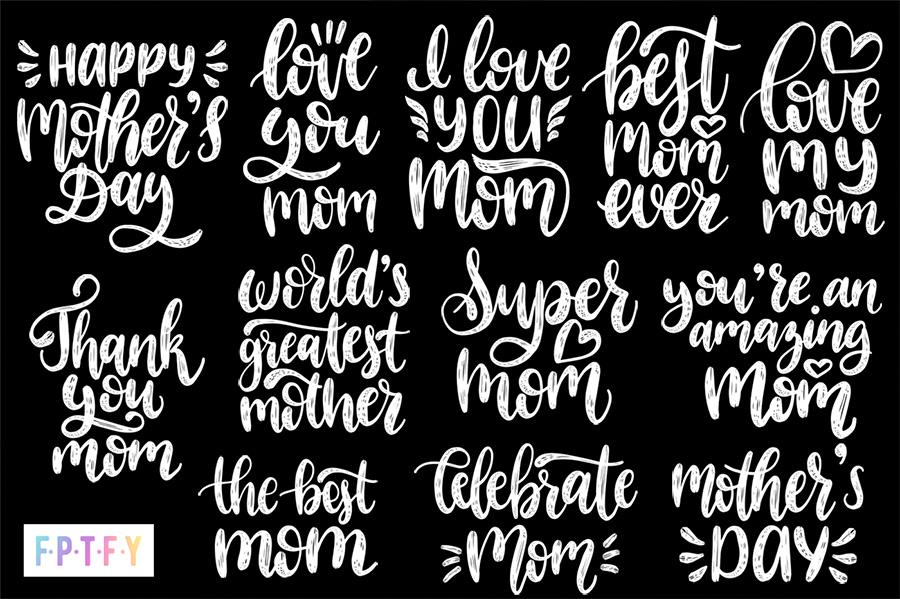 HAPPY
Mother's
Day
love
you
mom
I love
YOU
Mom
best
mom
ever
love
my
mom
Thank
you
mom
world's
greatest
mother
Super
mom
you're an
amazing
Mom
the best
mom
Celebrate
Mom
mother's
DAY
F·P·T·F·Y